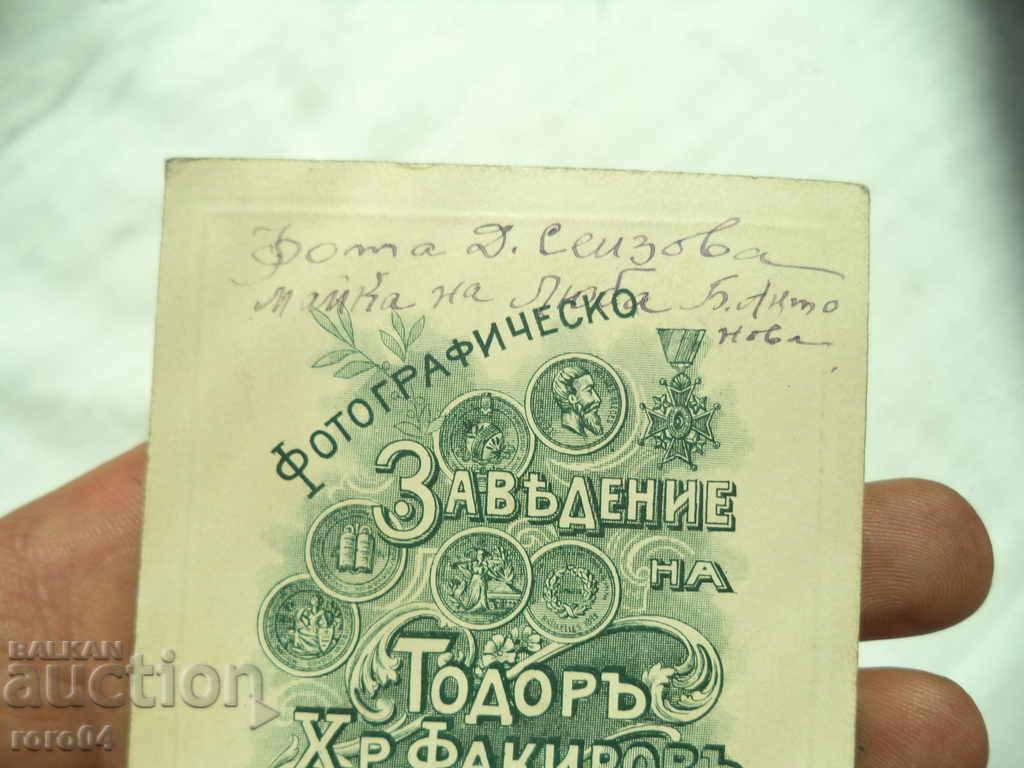 Фота Д. Сеизова
майка на Люба Б. Анто
нова
Фотографическо
Заведение
на
Тодоръ
Хр. Факировъ
BALKAN
auction
roro04